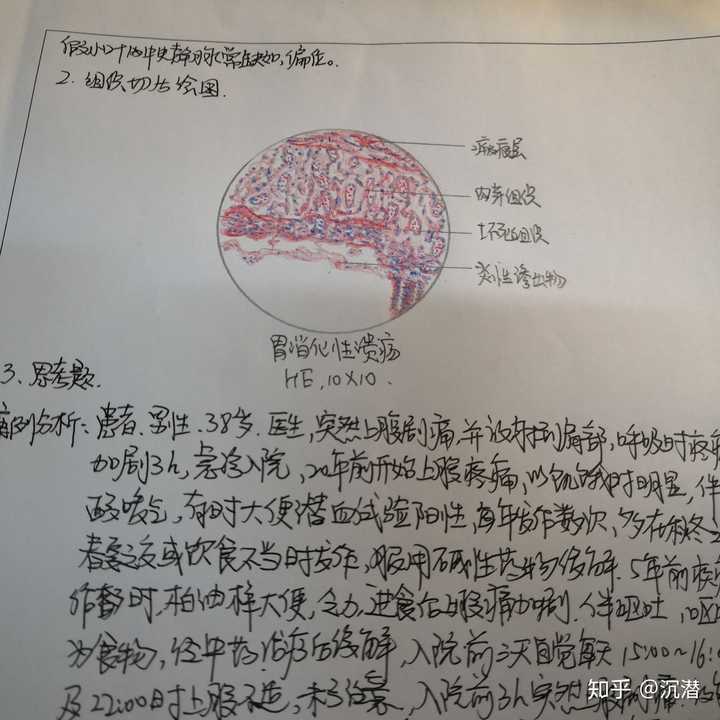 假小叶内中央静脉常缺如,偏位。
2. 组织切片绘图.
瘢痕层
肉芽组织
坏死组织
炎性渗出物
胃消化性溃疡
HE, 10×10.
3. 思考题.
病例分析: 患者.男性.38岁.医生,突然上腹剧痛,并放射到肩部,呼吸时疼痛
加剧3h,急诊入院,20年前开始上腹疼痛,以饥饿时明显,伴
酸嗳气,有时大便潜血试验阳性,每年发作数次,多在秋冬之
春夏之交或饮食不当时发作,服用碱性药物缓解.5年前疾病
作时,柏油样大便,乏力.进食后上腹痛加剧.伴呕吐,呕
为食物,经中药治疗后缓解,入院前三天自觉每天15:00~16:
及22:00时上腹不适,未予注意,入院前3h突然上腹剧痛
知乎 @沉潜